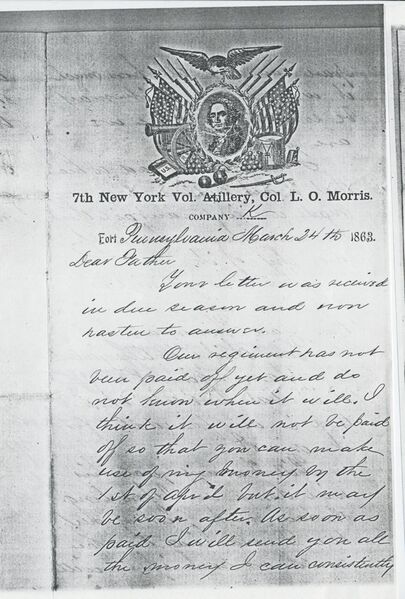 7th New York Vol. Atillery, Col. L. O. Morris.
COMPANY K
Fort Pennsylvania March 24th 1863.
Dear Father
Your letter was received
in due season and now
hasten to answer.
Our regiment has not
been paid off yet and do
not know when it will. I
think it will not be paid
off so that you can make
use of my money by the
1st of April but it may
be soon after. As soon as
paid I will send you all
the money I can consistently